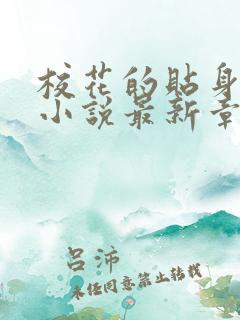 校花的貼身
小説最新章
呂沛
未经同意禁止转载